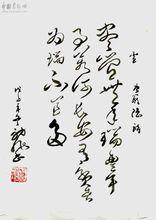 雪 唐 罗隐诗
尽道丰年瑞丰年
事若何长安有贫者
为瑞不宜多